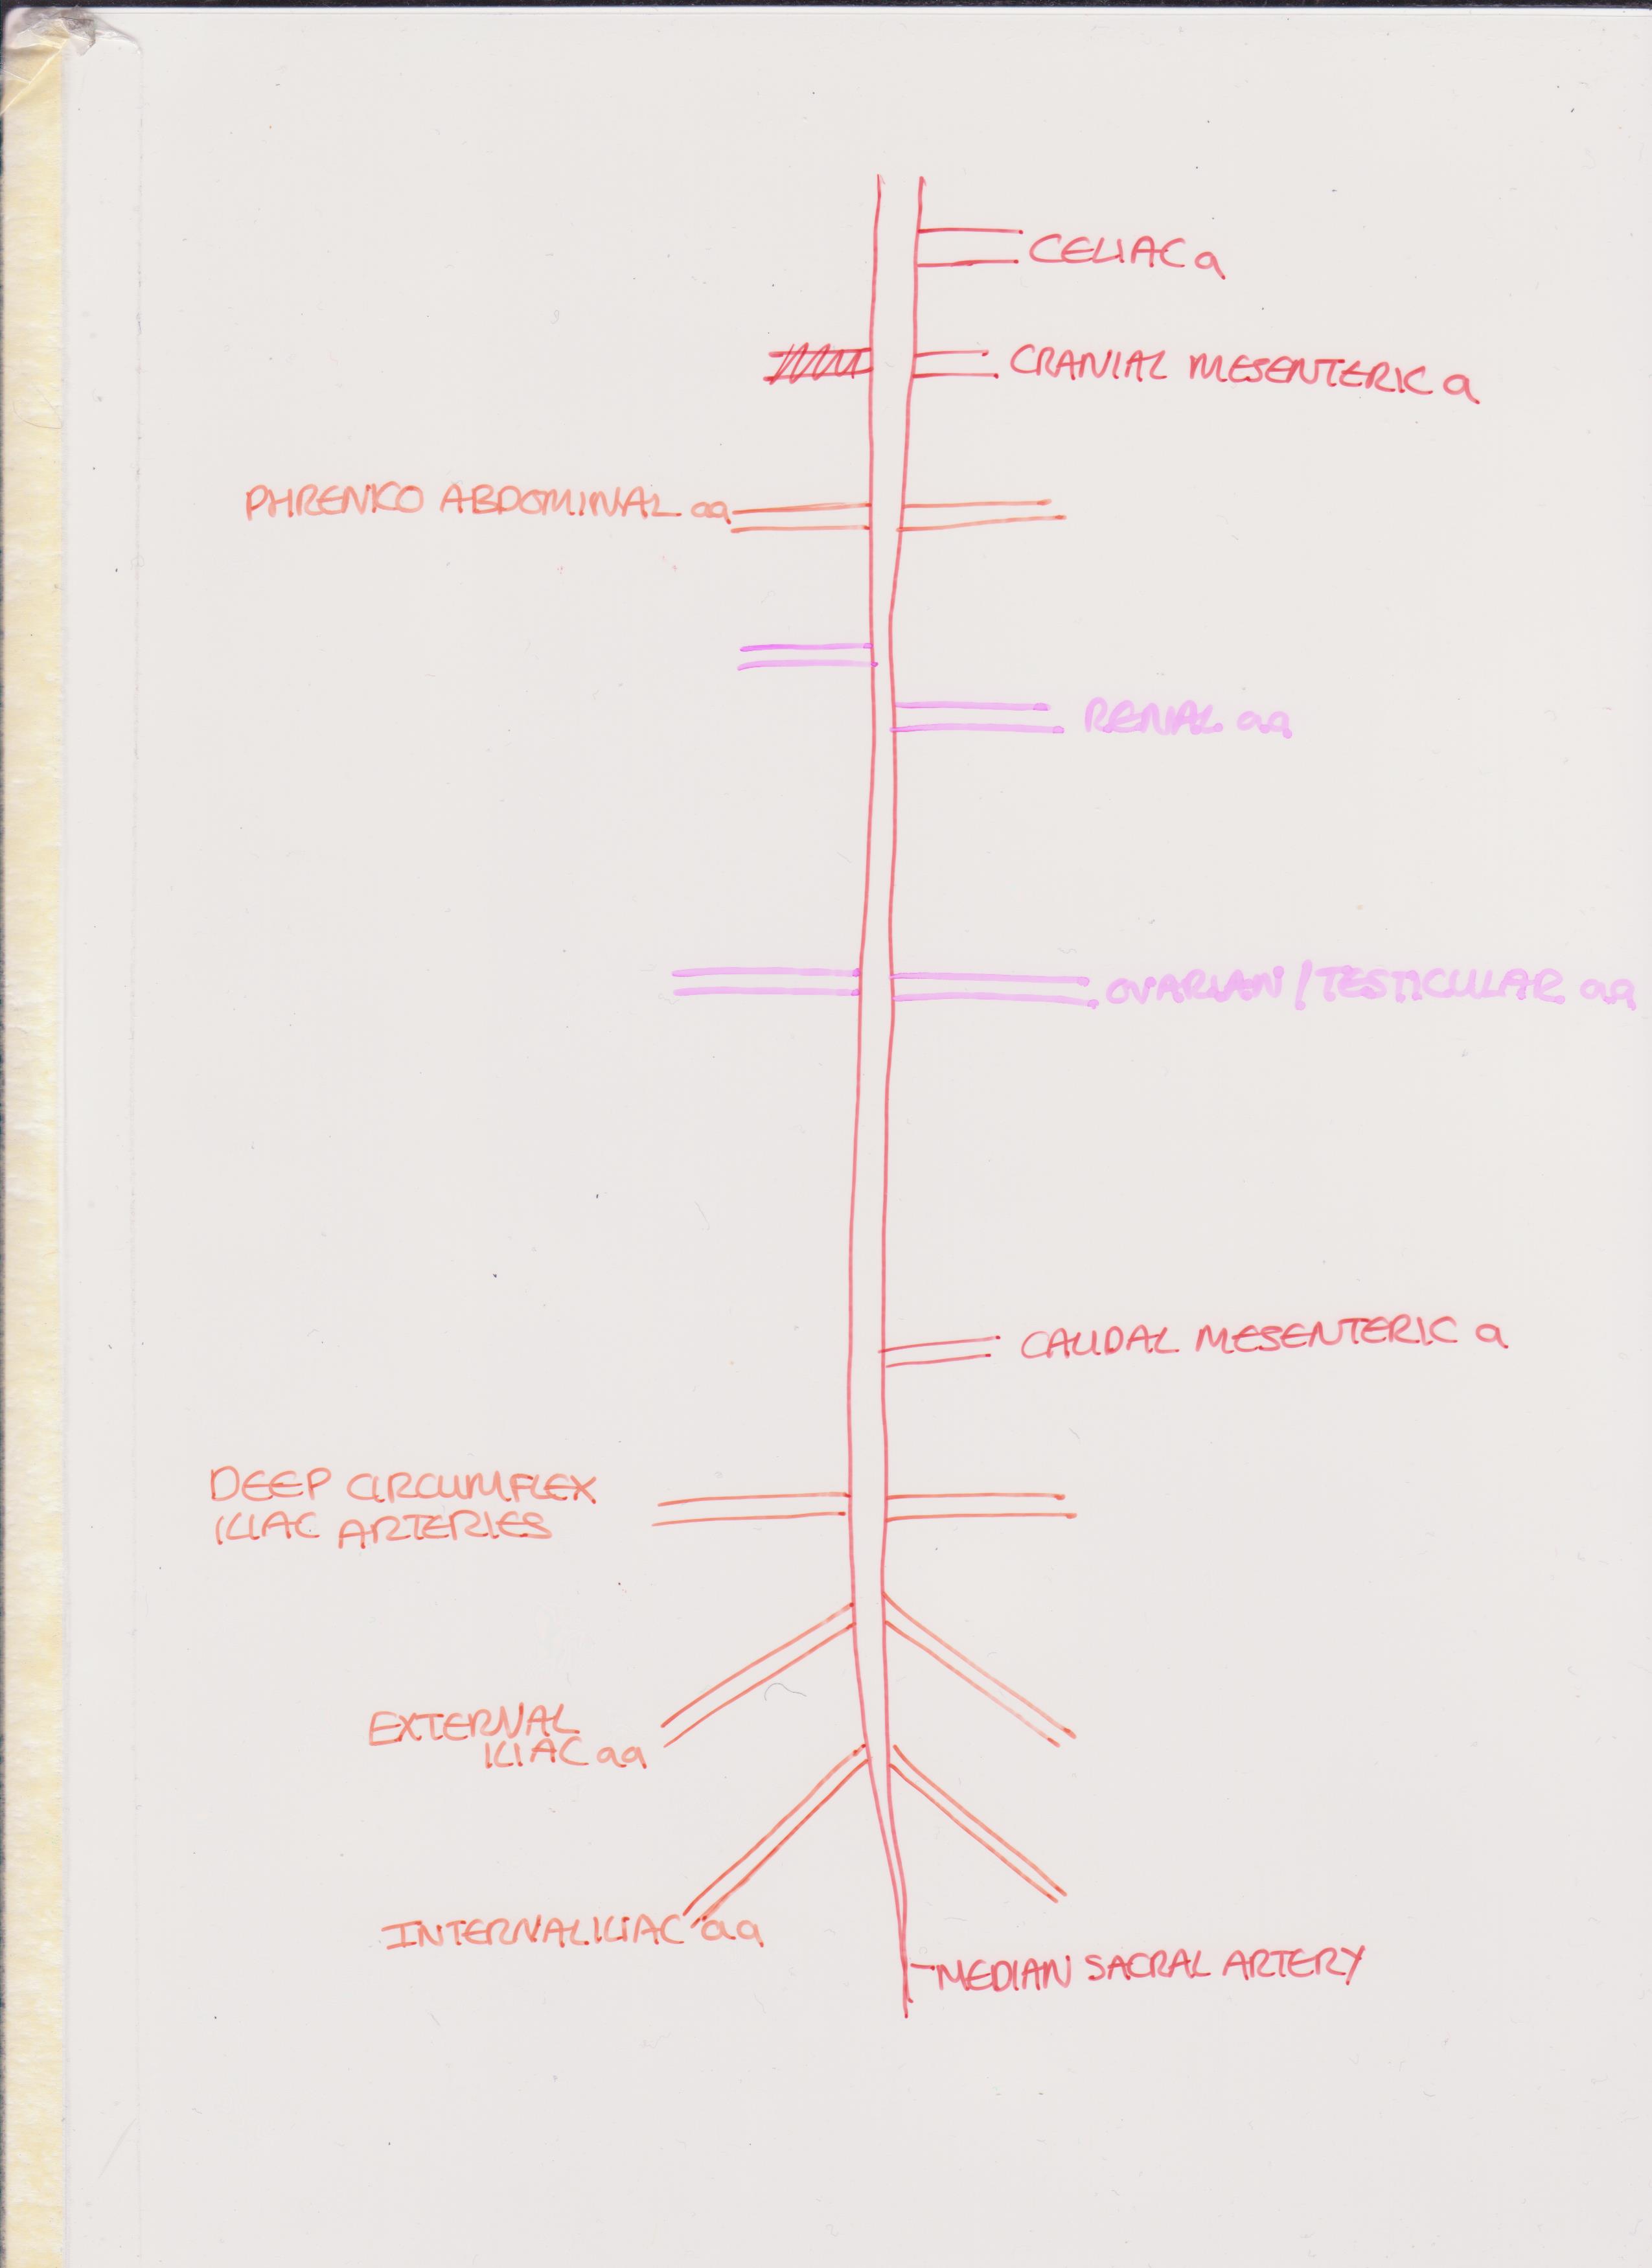 CELIAC a
CRANIAL MESENTERIC a
PHRENICO ABDOMINAL aa
RENAL aa
OVARIAN / TESTICULAR aa
CAUDAL MESENTERIC a
DEEP CIRCUMFLEX
ILIAC ARTERIES
EXTERNAL
ILIAC aa
INTERNAL ILIAC aa
MEDIAN SACRAL ARTERY